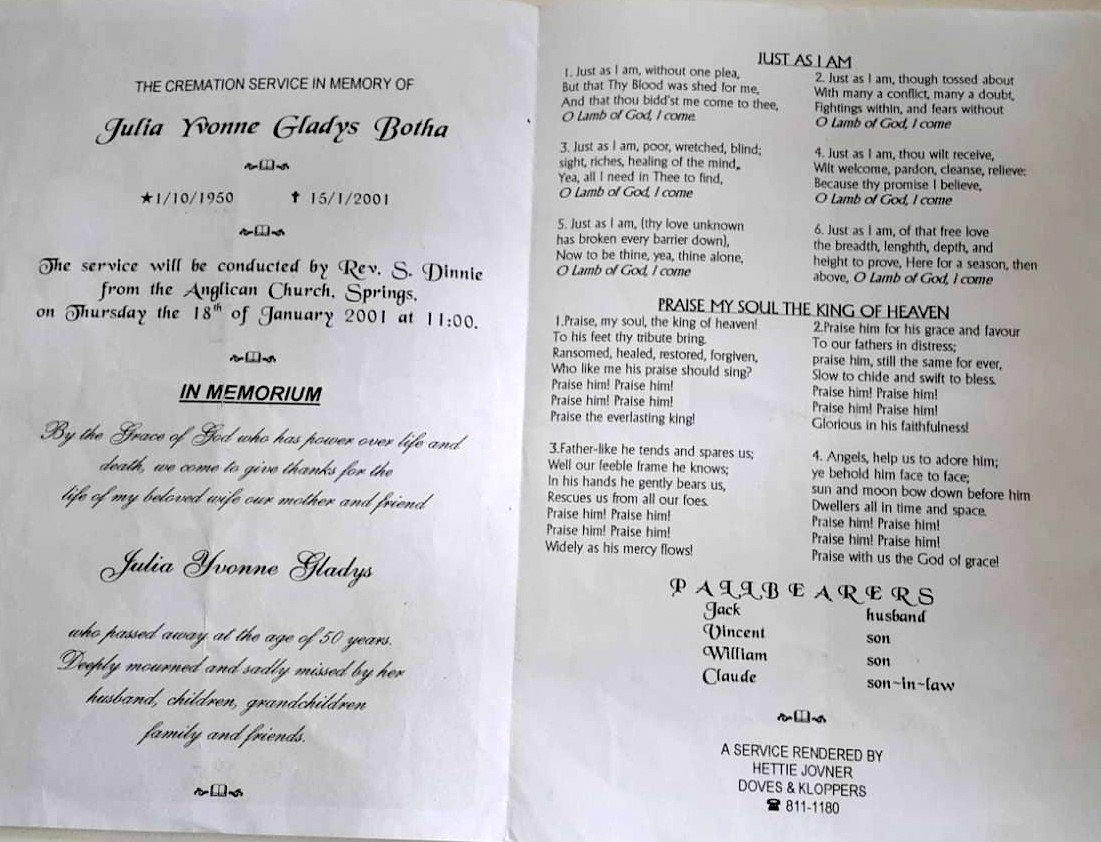 THE CREMATION SERVICE IN MEMORY OF
Julia Yvonne Gladys Botha
★1/10/1950 ✝ 15/1/2001
The service will be conducted by Rev. S. Dinnie
from the Anglican Church, Springs,
on Thursday the 18th of January 2001 at 11:00.
IN MEMORIUM
By the Grace of God who has power over life and
death, we come to give thanks for the
life of my beloved wife our mother and friend
Julia Yvonne Gladys
who passed away at the age of 50 years.
Deeply mourned and sadly missed by her
husband, children, grandchildren
family and friends.
JUST AS I AM
1. Just as I am, without one plea,
But that Thy Blood was shed for me,
And that thou bidd'st me come to thee,
O Lamb of God, I come.
2. Just as I am, though tossed about
With many a conflict, many a doubt,
Fightings within, and fears without
O Lamb of God, I come
3. Just as I am, poor, wretched, blind;
sight, riches, healing of the mind,
Yea, all I need in Thee to find,
O Lamb of God, I come
4. Just as I am, thou wilt receive,
Wilt welcome, pardon, cleanse, relieve:
Because thy promise I believe,
O Lamb of God, I come
5. Just as I am, (thy love unknown
has broken every barrier down),
Now to be thine, yea, thine alone,
O Lamb of God, I come
6. Just as I am, of that free love
the breadth, lenghth, depth, and
height to prove, Here for a season, then
above, O Lamb of God, I come
PRAISE MY SOUL THE KING OF HEAVEN
1.Praise, my soul, the king of heaven!
To his feet thy tribute bring.
Ransomed, healed, restored, forgiven,
Who like me his praise should sing?
Praise him! Praise him!
Praise him! Praise him!
Praise the everlasting king!
2.Praise him for his grace and favour
To our fathers in distress;
praise him, still the same for ever,
Slow to chide and swift to bless.
Praise him! Praise him!
Praise him! Praise him!
Glorious in his faithfulness!
3.Father-like he tends and spares us;
Well our feeble frame he knows;
In his hands he gently bears us,
Rescues us from all our foes.
Praise him! Praise him!
Praise him! Praise him!
Widely as his mercy flows!
4. Angels, help us to adore him;
ye behold him face to face;
sun and moon bow down before him
Dwellers all in time and space.
Praise him! Praise him!
Praise him! Praise him!
Praise with us the God of grace!
PALLBEARERS
Jack husband
Vincent son
William son
Claude son~in~law
A SERVICE RENDERED BY
HETTIE JOVNER
DOVES & KLOPPERS
☎ 811-1180